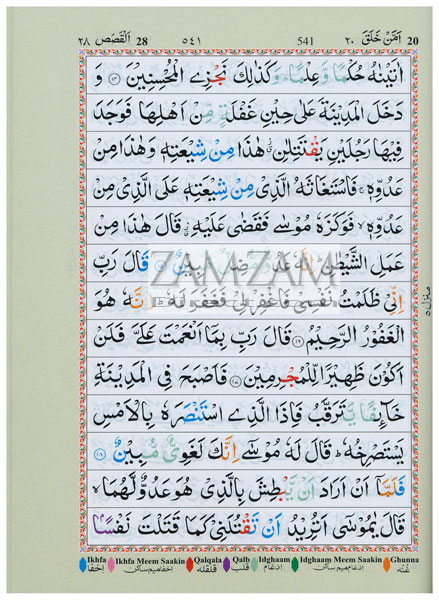 20 اَمَّنْ خَلَقَ ٢٠ 541 ٥٤١ 28 اَلْقَصَص ٢٨
اٰتَيْنٰهُ حُكْمًا وَّعِلْمًا ؕ وَكَذٰلِكَ نَجْزِي الْمُحْسِنِيْنَ ﴿۱۴﴾ وَ
دَخَلَ الْمَدِيْنَةَ عَلٰى حِيْنِ غَفْلَةٍ مِّنْ اَهْلِهَا فَوَجَدَ
فِيْهَا رَجُلَيْنِ يَقْتَتِلٰنِ ۫ هٰذَا مِنْ شِيْعَتِهٖ وَهٰذَا مِنْ
عَدُوِّهٖ ۚ فَاسْتَغَاثَهُ الَّذِيْ مِنْ شِيْعَتِهٖ عَلَى الَّذِيْ مِنْ
عَدُوِّهٖ ۙ فَوَكَزَهٗ مُوْسٰى فَقَضٰى عَلَيْهِ ۫ قَالَ هٰذَا مِنْ
عَمَلِ الشَّيْطٰنِ ؕ اِنَّهٗ عَدُوٌّ قَالَ رَبِّ
اِنِّيْ ظَلَمْتُ نَفْسِيْ فَاغْفِرْ لِيْ فَغَفَرَ لَهٗ ؕ اِنَّهٗ هُوَ
الْغَفُوْرُ الرَّحِيْمُ ﴿۱۶﴾ قَالَ رَبِّ بِمَاۤ اَنْعَمْتَ عَلَيَّ فَلَنْ
اَكُوْنَ ظَهِيْرًا لِّلْمُجْرِمِيْنَ ﴿۱۷﴾ فَاَصْبَحَ فِي الْمَدِيْنَةِ
خَآئِفًا يَّتَرَقَّبُ فَاِذَا الَّذِي اسْتَنْصَرَهٗ بِالْاَمْسِ
يَسْتَصْرِخُهٗ ؕ قَالَ لَهٗ مُوْسٰۤى اِنَّكَ لَغَوِيٌّ مُّبِيْنٌ ﴿۱۸﴾
فَلَمَّاۤ اَنْ اَرَادَ اَنْ يَّبْطِشَ بِالَّذِيْ هُوَ عَدُوٌّ لَّهُمَا ۙ
قَالَ يٰمُوْسٰۤى اَتُرِيْدُ اَنْ تَقْتُلَنِيْ كَمَا قَتَلْتَ نَفْسًا
منزل ٥
ZAMZAM
Ikhfa Ikhfa Meem Saakin Qalqala Qalb Idghaam Idghaam Meem Saakin Ghunna
اخفا اخفامیم ساکن قلقلہ قلب ادغام ادغام میم ساکن غنّہ